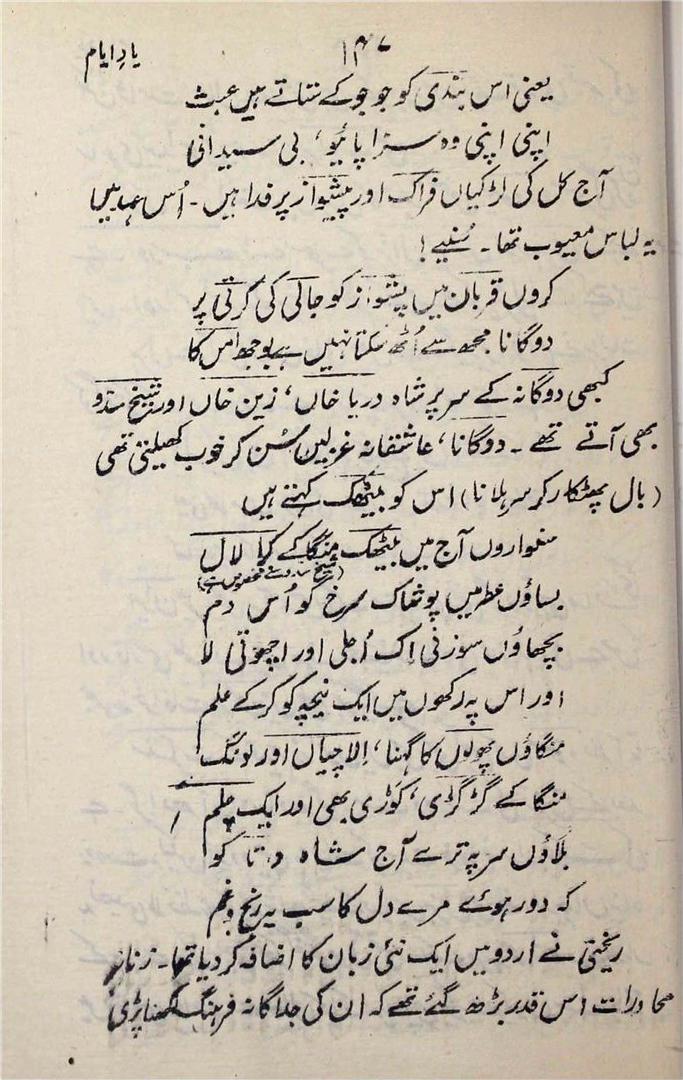 ۱۴۷
یادِ ایام
یعنی اس بندی کو جو جو کے ستاتے ہیں عبث
اپنی اپنی وہ سزا پائیو، بی سیدانی
آج کل کی لڑکیاں فراک اور پشیواز پر فدا ہیں۔ اُس عہد میں
یہ لباس معیوب تھا۔ سُنیے!
کروں قربان میں پشواز کو جالی کی کُرتی پر
دوگانا مجھ سے اُٹھ سکتا نہیں ہے بوجھ اس کا
کبھی دوگانہ کے سر پر شاہ دریا خاں، زین خاں اور شیخ سدو
بھی آتے تھے۔ دوگانا، عاشقانہ غزلیں سُن کر خوب کھیلتی تھی
(بال پھٹکار کر سر ہلانا) اس کو بیٹھک کہتے ہیں
منگواروں آج میں بیٹھک منگا کے لال
بساؤں عطر میں پوشاک سرخ کو اُس دم
بچھاؤں سوزنی اِک اُجلی اور اچھوتی لا
اور اس پہ رکھوں میں ایک نیچہ کو کر کے علم
منگاؤں پُھولوں کا گہنا، اِلاچیاں اور لونگ
منگا کے گڑگڑی، کوڑی بھی اور ایک چلم
بلاؤں سر پہ ترے آج شاہ دتا کو
کہ دور ہوئے مرے دل کا سب یہ رنج و غم
ریختی نے اردو میں ایک نئی زبان کا اضافہ کر دیا تھا۔ زنانہ
محاورات اس قدر بڑھ گئے تھے کہ ان کی جداگانہ فرہنگ لکھنا پڑی